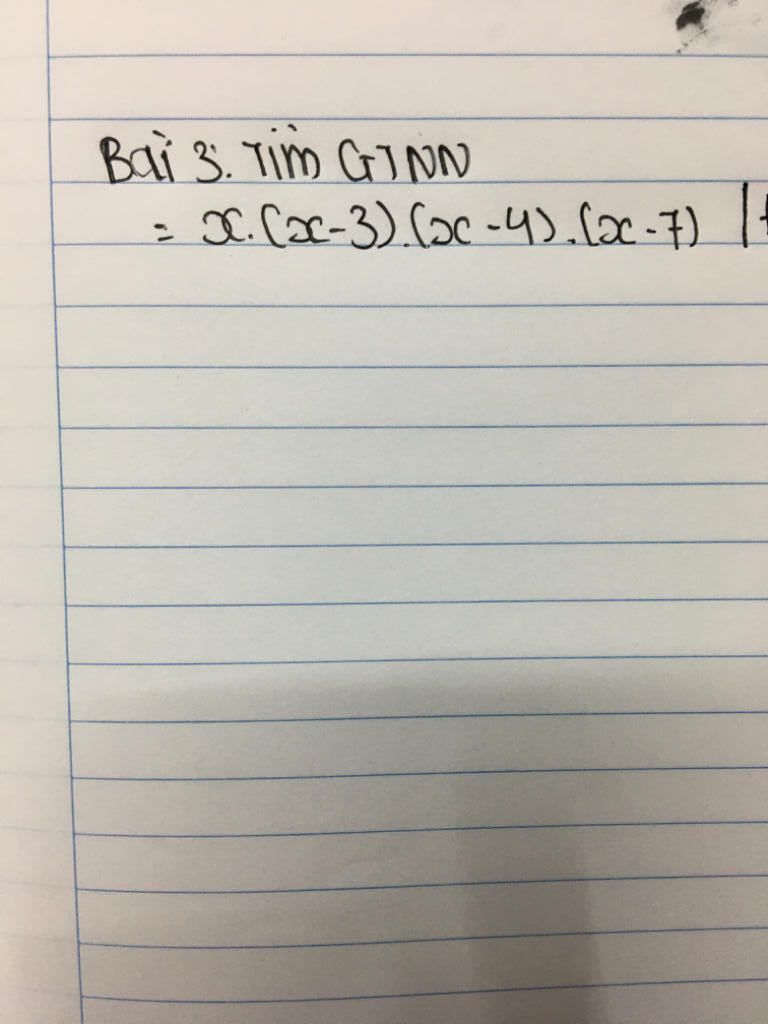 Bài 3: Tìm GTNN
= x.(x-3).(x-4).(x-7)